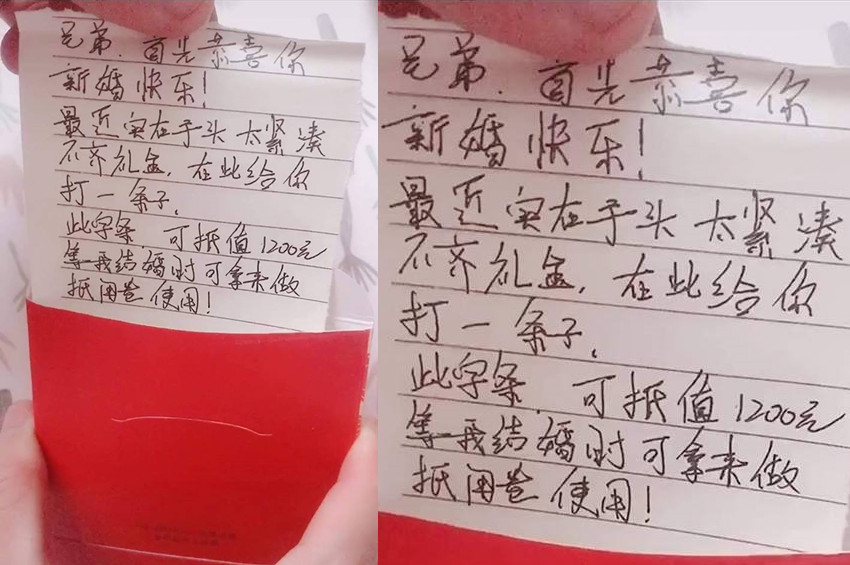 兄弟.首先恭喜你
新婚快乐!
最近实在手头太紧凑
不齐礼金,在此给你
打一条子,
此字条.可抵值1200元
等我结婚时可拿来做
抵用卷使用!
兄弟.首先恭喜你
新婚快乐!
最近实在手头太紧凑
不齐礼金,在此给你
打一条子,
此字条.可抵值1200元
等我结婚时可拿来做
抵用卷使用!